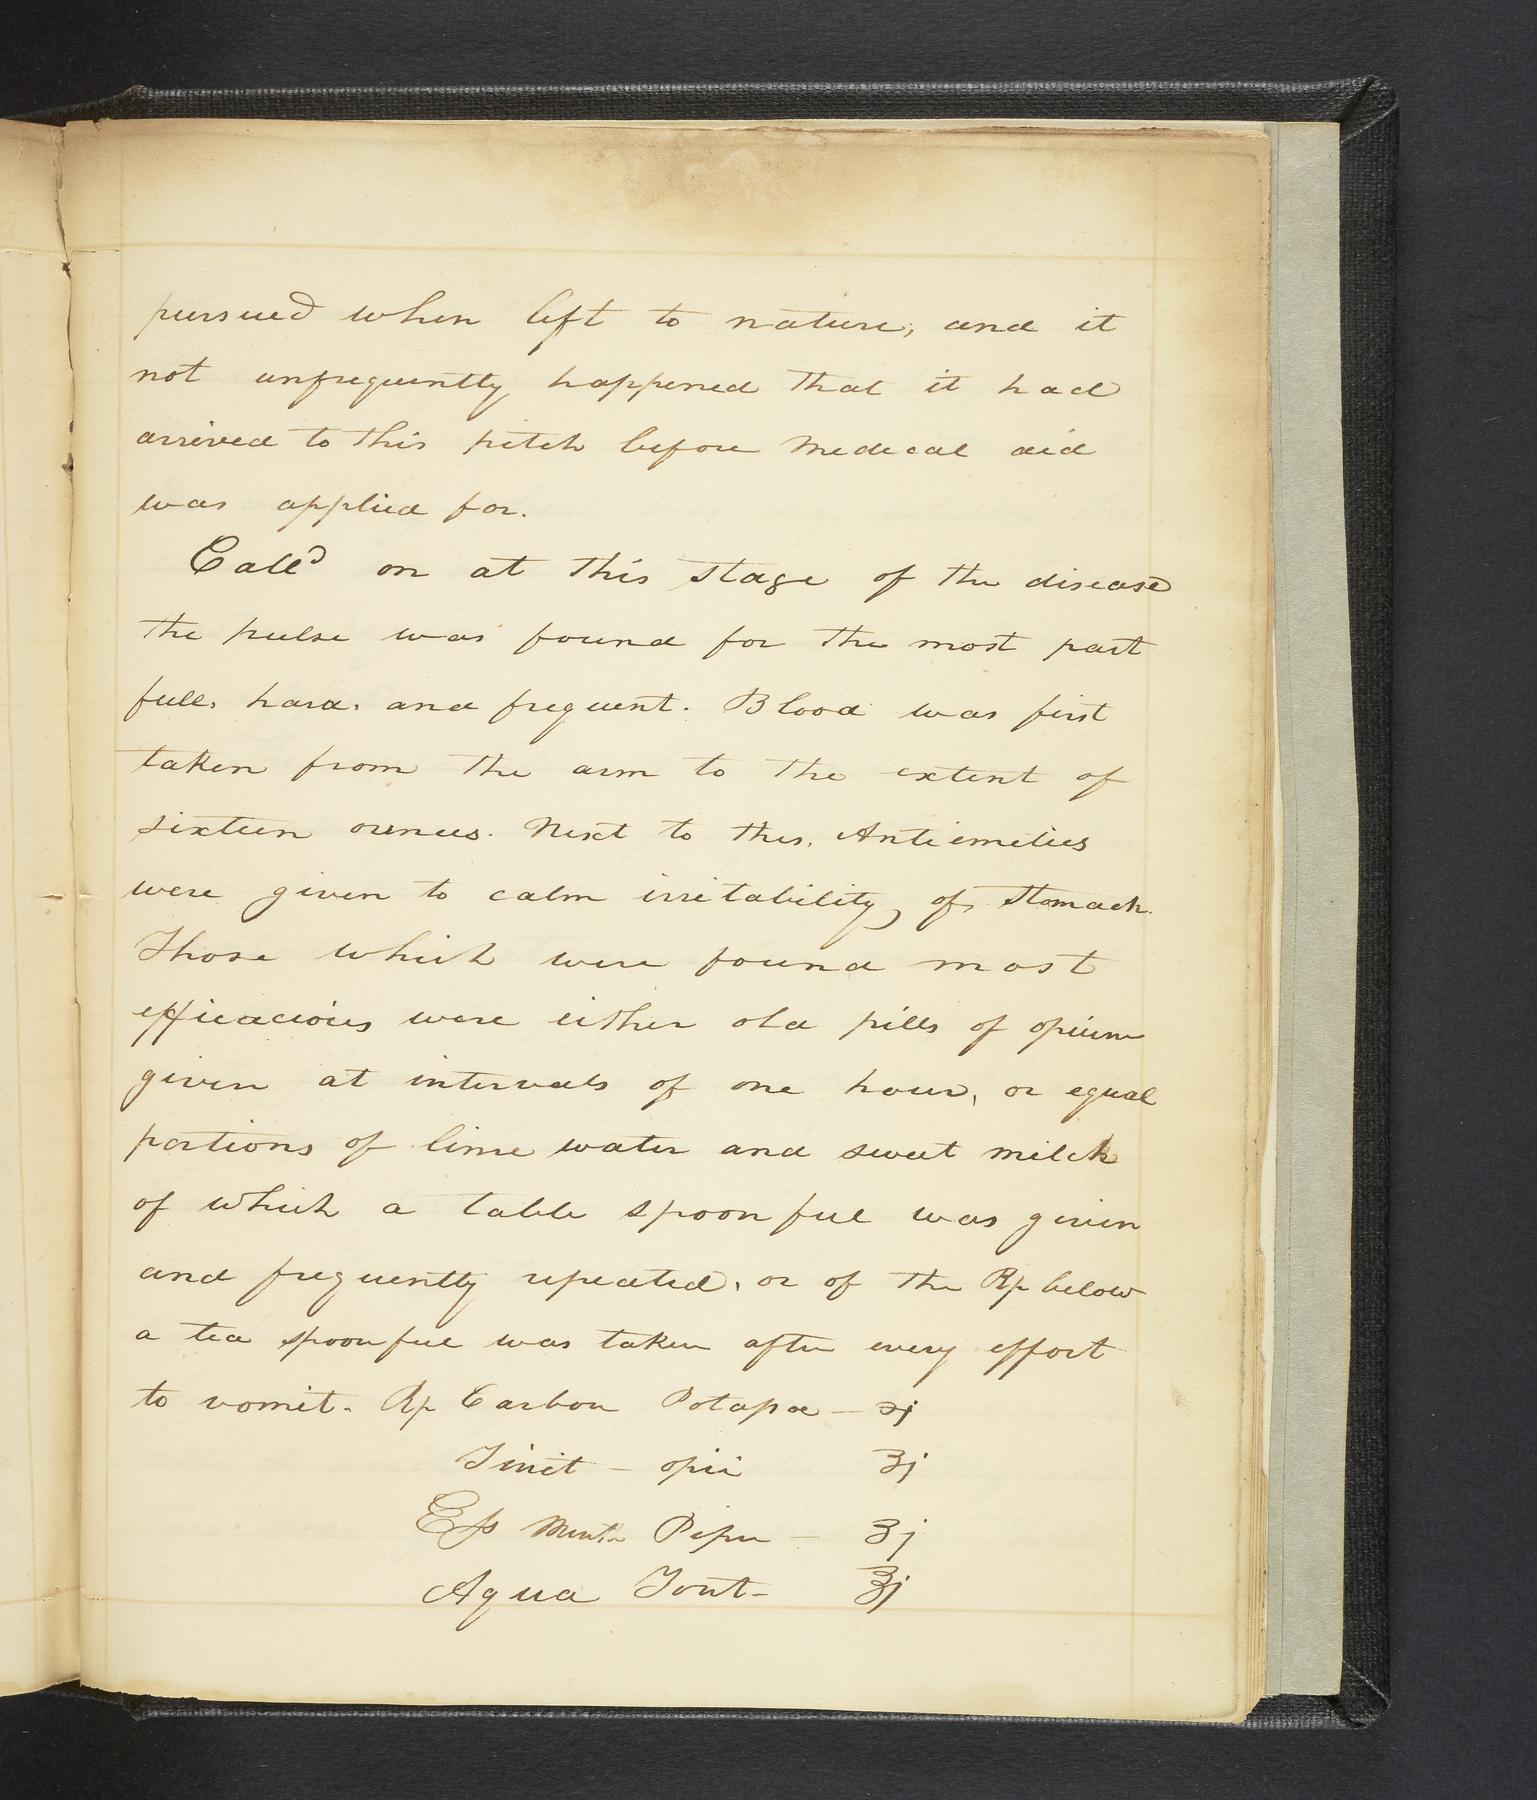 pursued when left to nature, and it
not unfrequently happened that it had
arrived to this pitch before medical aid
was applied for.
Calld on at this stage of the disease
the pulse was found for the most part
full, hard, and frequent. Blood was first
taken from the arm to the extent of
sixteen ounces. Next to this, Antiemetics
were given to calm irritability, of stomach.
Those which were found most
efficacious were either old pills of opium
given at intervals of one hour, or equal
portions of lime water and sweet milk
of which a table spoonful was given
and frequently repeated, or of the Rp below
a tea spoonful was taken after every effort
to vomit. Rp Carbon Potassa — ʒj
Tinct - opii ʒj
Ess Menth Pipr — ʒj
Aqua Font - ℥j